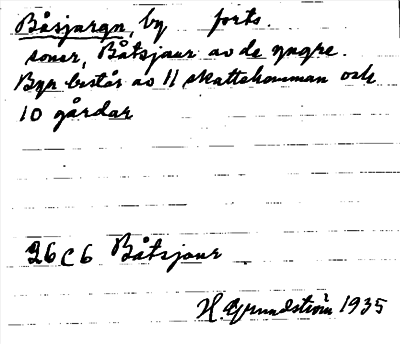 Båsjargn, by forts.
soner, Båtsjaur av de yngre.
Byn består av 11 skattehemman och
10 gårdar
26 C 6 Båtsjaur
H. Grundström 1935